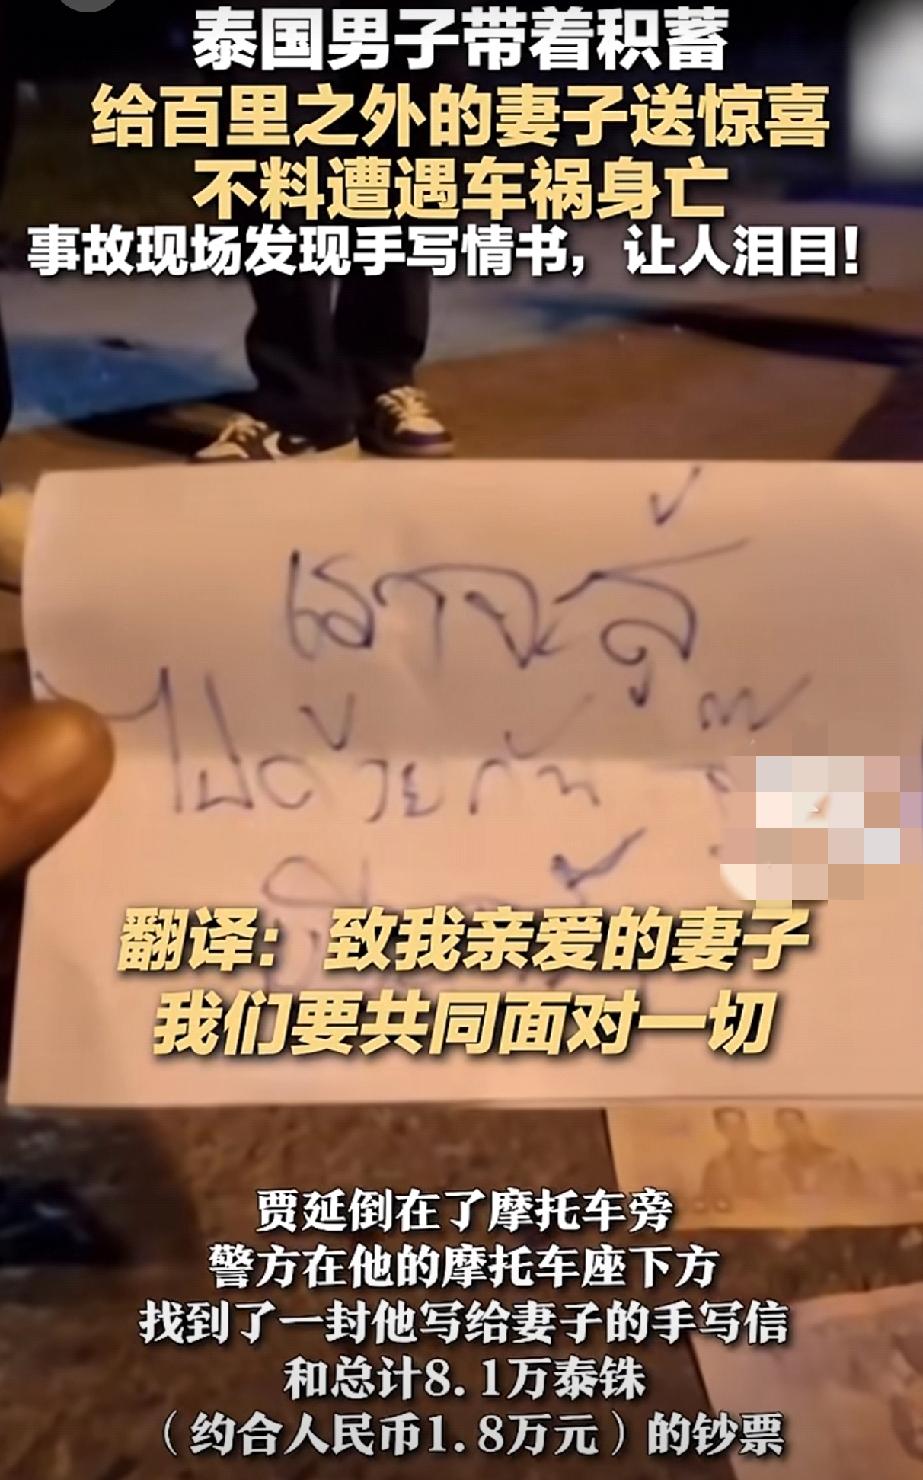 泰国男子带着积蓄
给百里之外的妻子送惊喜
不料遭遇车祸身亡
事故现场发现手写情书，让人泪目！
เราจะสู้
ไปด้วยกัน
翻译：致我亲爱的妻子
我们要共同面对一切
贾延倒在了摩托车旁
警方在他的摩托车座下方
找到了一封他写给妻子的手写信
和总计8.1万泰铢
（约合人民币1.8万元）的钞票